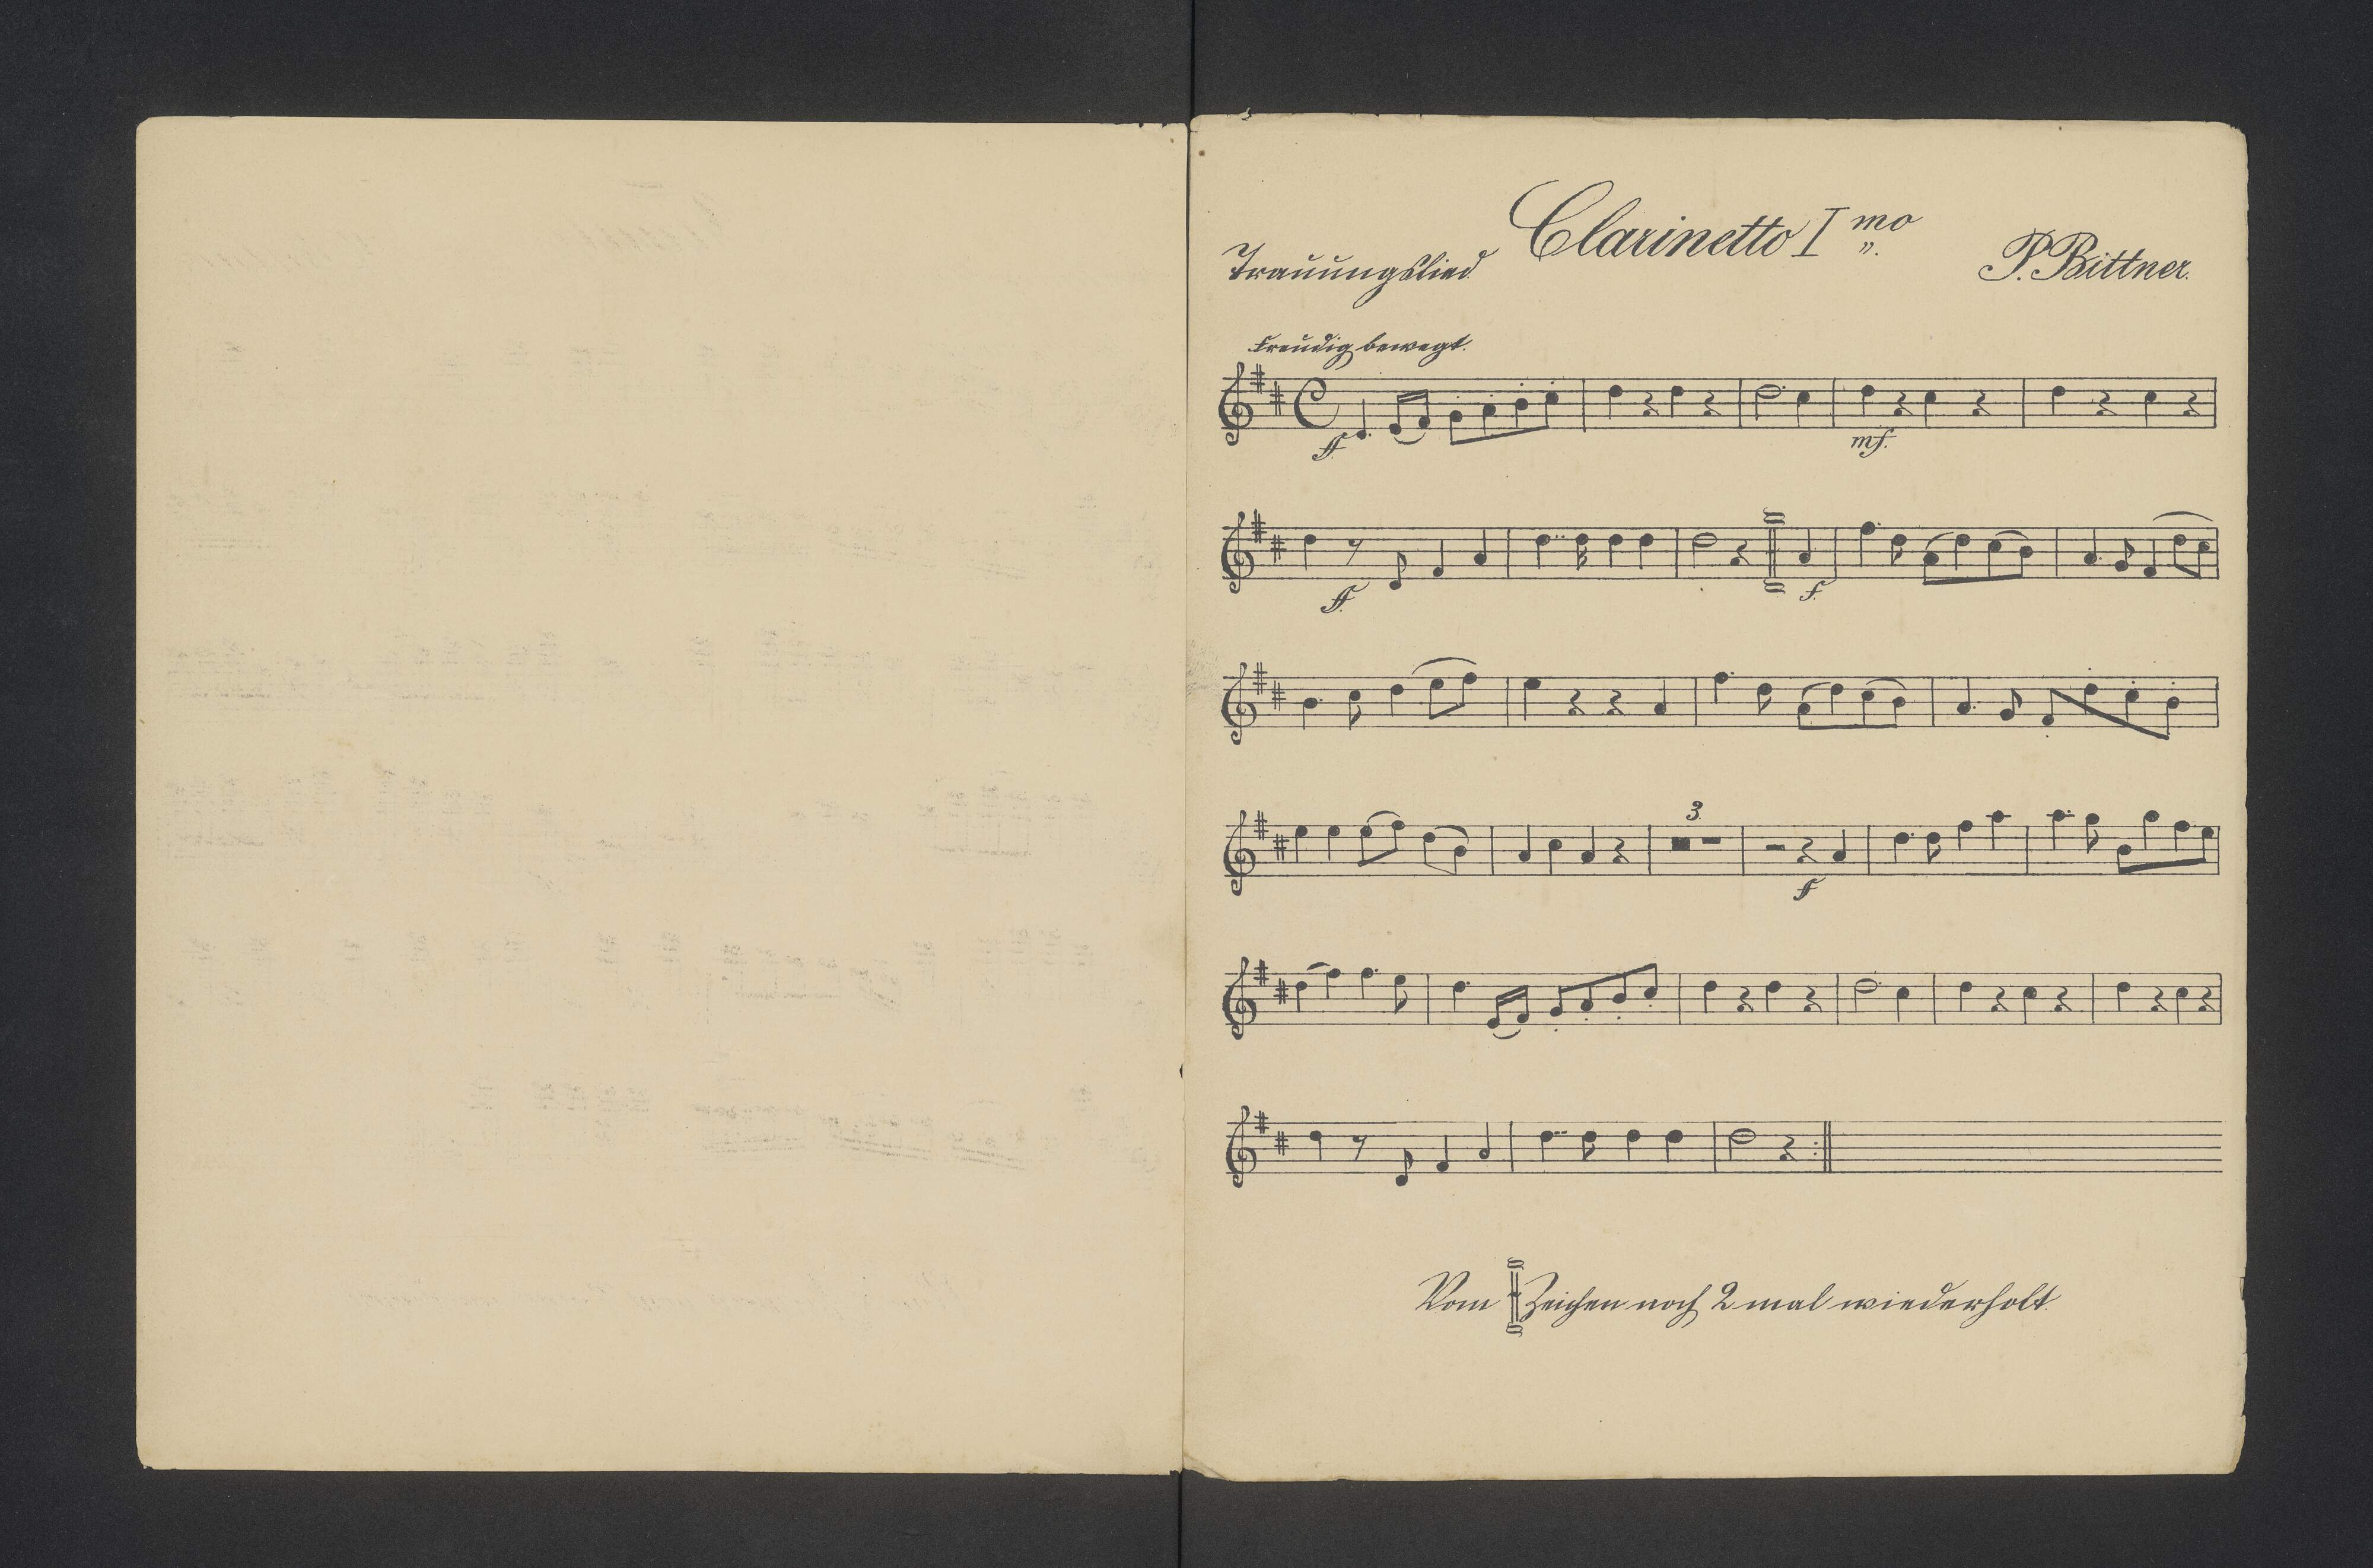 Clarinetto I mo
Trauungslied. P. Bittner.
Freudig bewegt.
ff.
mf.
ff.
f.
3.
f
Vom Zeichen noch 2 mal wiederholt.